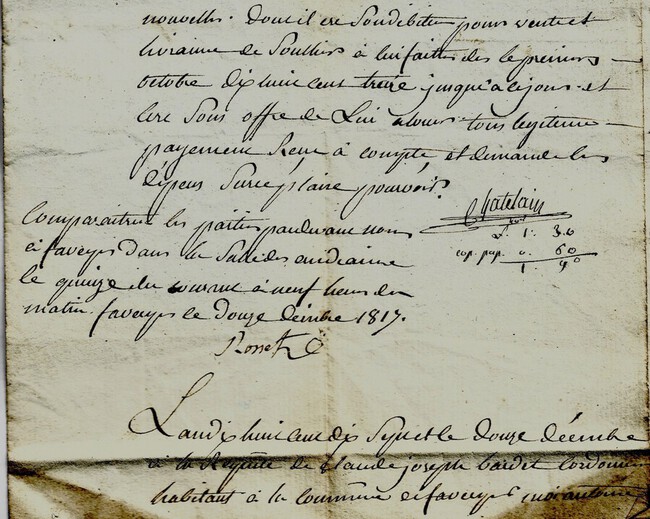 nouvelles. dont il est son débiteur pour vente et
livraison de souliers à lui faites dès le premier
octobre dix huit cent treize jusqu'à ce jour et
ce sous offre de lui allouer tous légitime
payement reçu à compte, et demande les
dépens surce plaire pourvoir.
Chatelain
L. 1: 30
cop. pap. 0. 60
1. 90
Comparaitront les parties pardevant nous
à faverges dans la salle des audiance
le quinze du courant à neuf heures du
matin. faverges le douze décembre 1817.
Rosset
L'an dix huit cent dix sept et le douze décembre
à la Requête de Claude joseph bardet cordonnier
habitant à la commune de faverges moi antoine